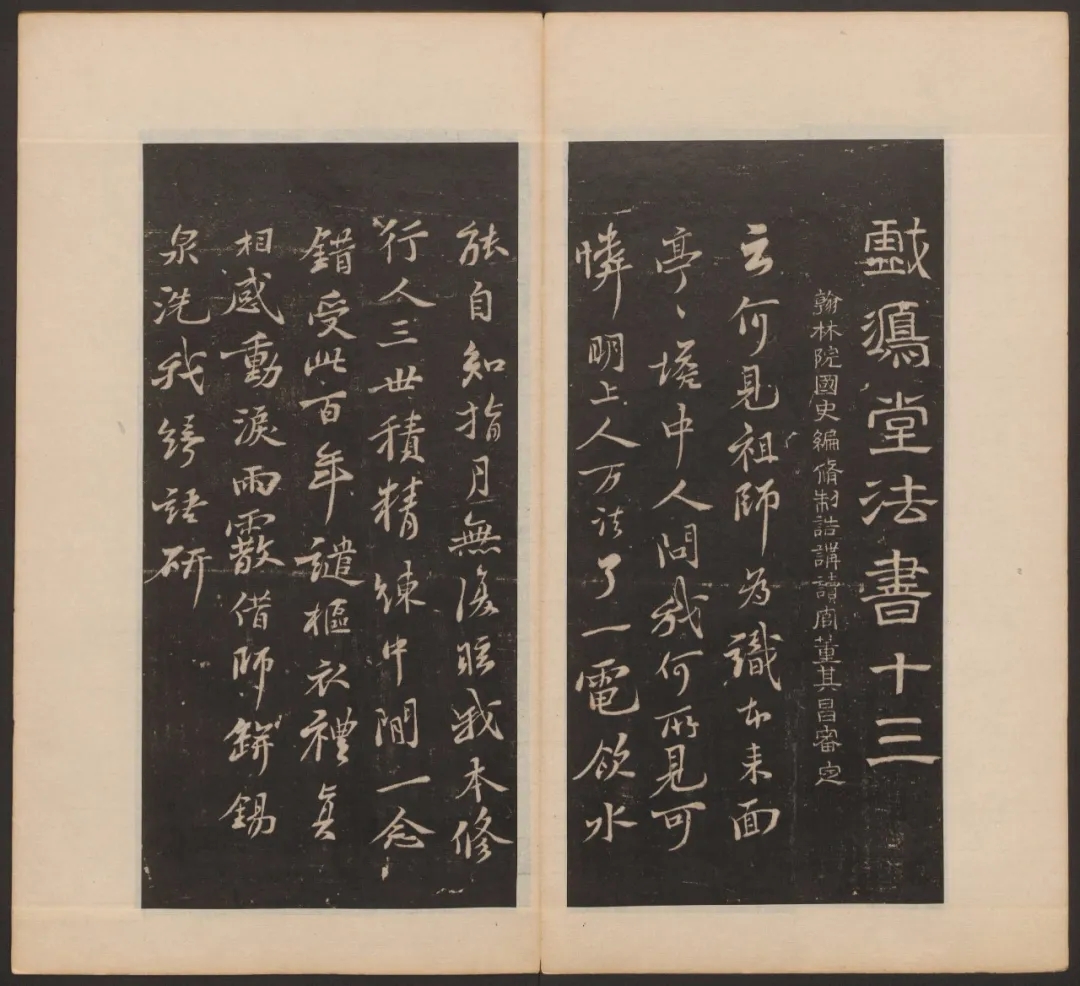 戲鴻堂法書十三
翰林院國史編脩制誥講讀官董其昌審定
云何見祖師為識本来面
亭〻塔中人問我何所見可
憐明上人万法了一電飲水
能自知指月無復眩我本修
行人三世積精練中間一念
錯受此百年譴樞衣禮真
相感動淚雨霰借師錫
泉洗我綺語研